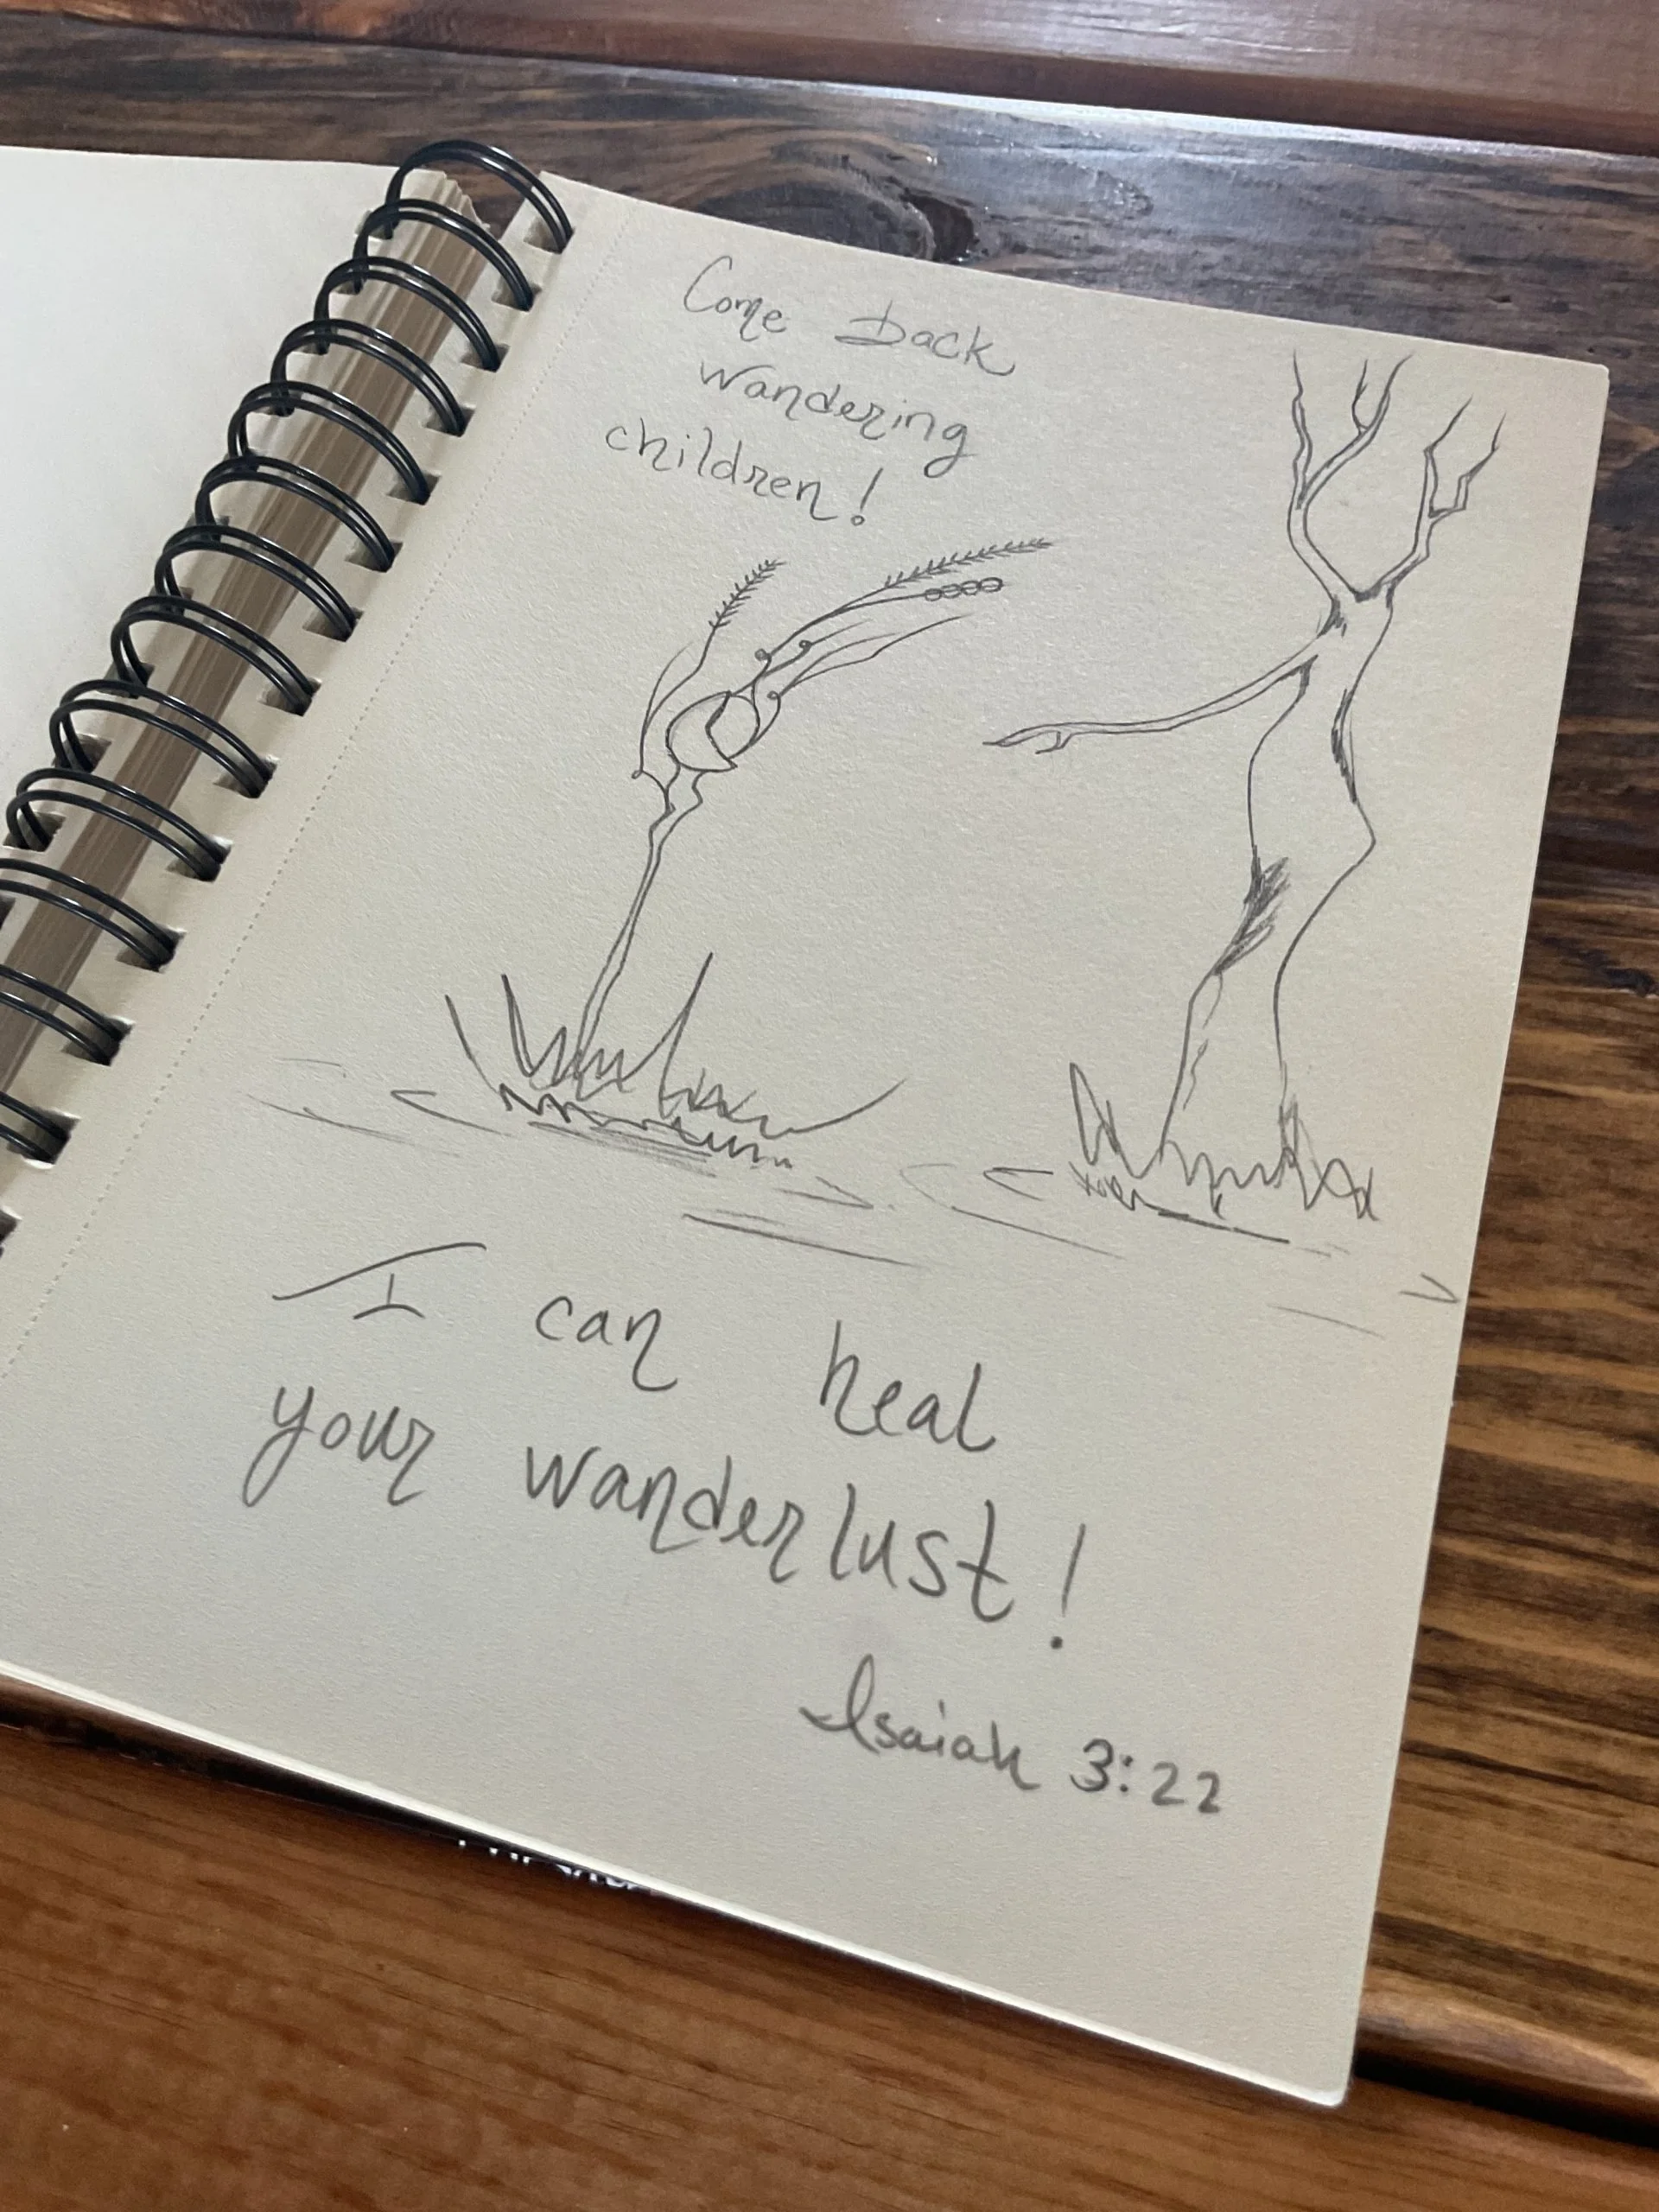 Come Back
wandering
children!
I can heal
your wanderlust!
Isaiah 3:22